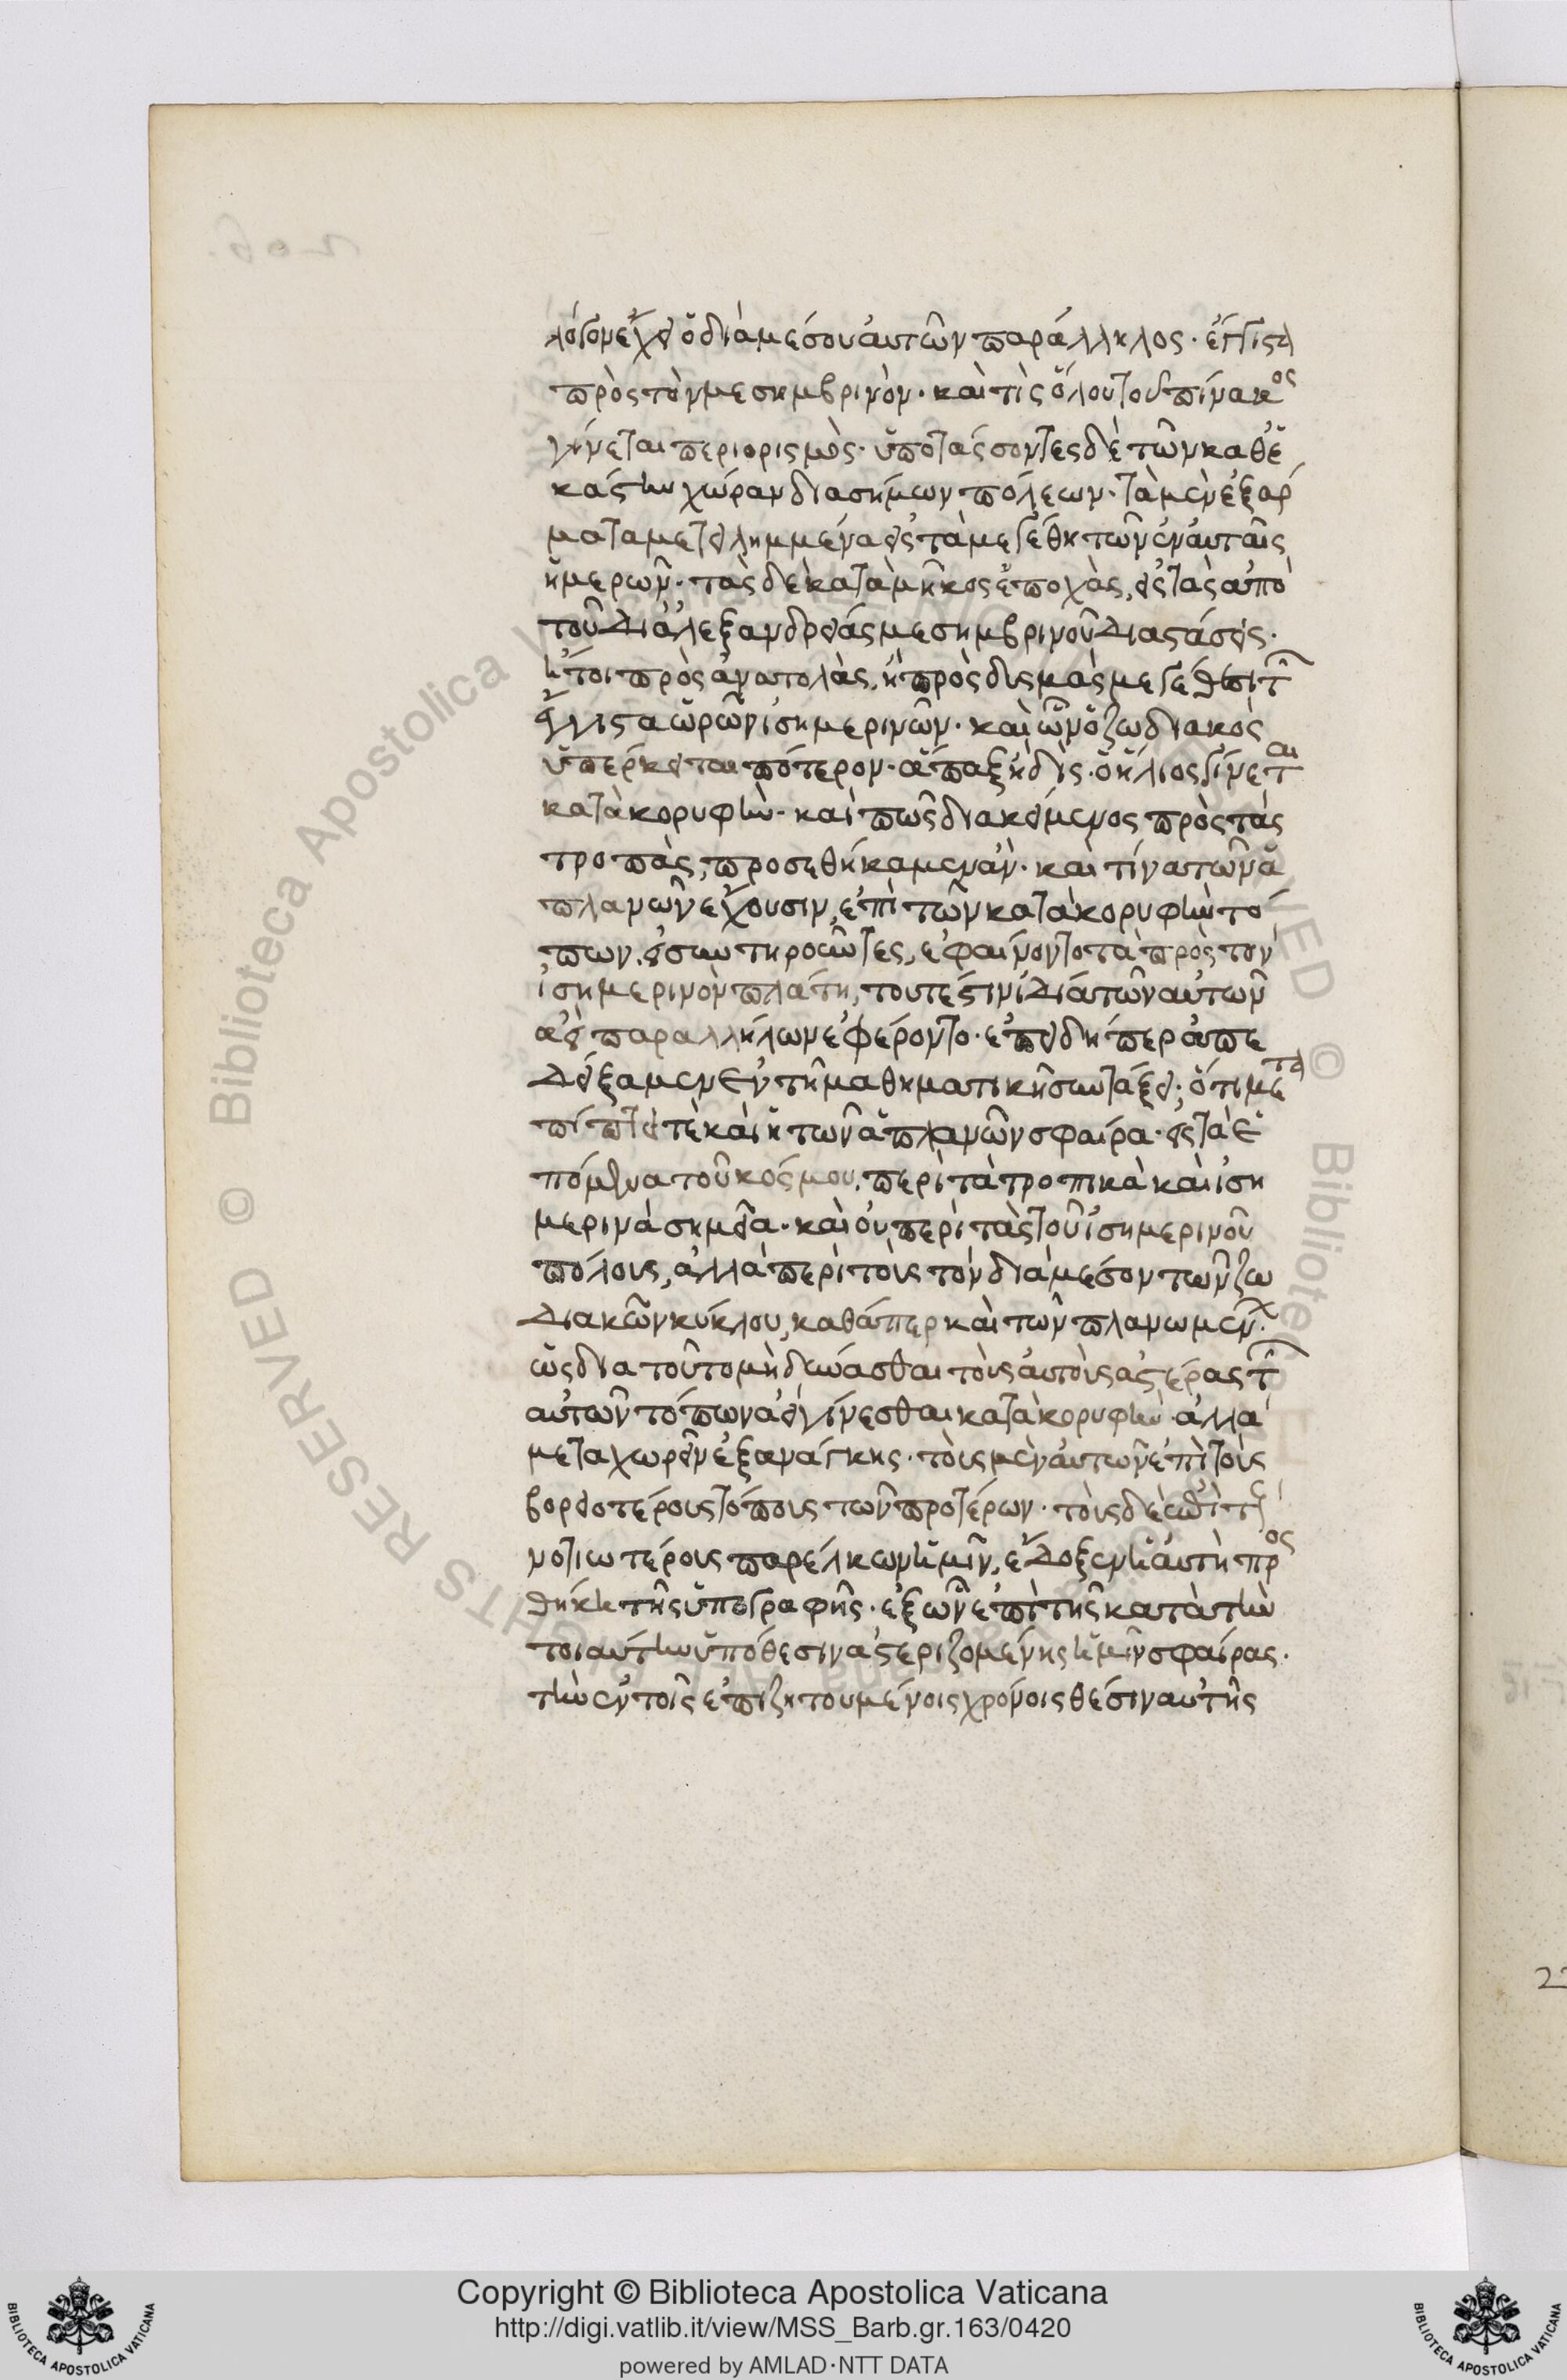 λόγον ἔχει ὁ διὰ μέσου αὐτῶν παράλληλος · ἔγγιστα
πρὸς τὸν μεσημβρινὸν · καὶ τίς ὅλου τοῦ πίνακος
γίνεται περιορισμὸς · ὑποτάσσοντες δὲ τῶν καθ' ἑ
κάστην χώραν διασήμων πόλεων · τὰ μὲν ἐξάρ
ματα μετειλημμένα εἰς τὰ μεγέθη τῶν ἐν αὐταῖς
ἡμερῶν · τὰς δὲ κατὰ μῆκος ἐποχὰς, εἰς τὰς ἀπὸ
τοῦ δι' Ἀλεξανδρείας μεσημβρινοῦ διαστάσεις ·
ἤτοι πρὸς ἀνατολὰς, ἢ πρὸς δυσμὰς μεγέθει τῶν
ἔγγιστα ὡρῶν ἰσημερινῶν · καὶ ὧν ὁ ζωδιακὸς
ὑπέρκειται πότερον · ἅπαξ ἢ δὶς · ὁ ἥλιος γίνεται
κατὰ κορυφὴν · καὶ πῶς διακείμενος πρὸς τὰς
τροπὰς, προσεθήκαμεν ἂν · καὶ τίνα τῶν ἀ
πλανῶν ἔχουσιν, ἐπὶ τῶν κατὰ κορυφὴν τό
πων, εἰ συντηροῦντες, ἐφαίνοντο τὰ πρὸς τὸν
ἰσημερινὸν πλάτη, τουτέστιν εἰ διὰ τῶν αὐτῶν
ἀεὶ παραλλήλων ἐφέροντο · ἐπειδήπερ ἀπε
δείξαμεν ἐν τῇ μαθηματικῇ συντάξει · ὅτι μετα
πίπτει τὲ καὶ ἡ τῶν ἀπλανῶν σφαῖρα · εἰς τὰ ἑ
πόμενα τοῦ κόσμου, περὶ τὰ τροπικὰ καὶ ἰση
μερινὰ σημεῖα · καὶ οὐ περὶ τὰς τοῦ ἰσημερινοῦ
πόλους, ἀλλὰ περὶ τοὺς τὸν διὰ μέσον τῶν ζω
διακῶν κύκλου, καθάπερ καὶ τῶν πλανωμένων ·
ὡς διὰ τοῦτο μὴ δύνασθαι τοὺς αὐτοὺς ἀστέρας τῶν
αὐτῶν τόπων ἀεὶ γίνεσθαι κατὰ κορυφὴν ἀλλὰ
μεταχωρεῖν ἐξ ἀνάγκης · τοὺς μὲν αὐτῶν ἐπὶ τοὺς
βορειοτέρους τόπους τῶν προτέρων · τοὺς δὲ ἐπὶ τοὺς
νοτιωτέρους παρέλκων ἡμῖν, ἔδοξεν ἡ αὐτὴ προσ
θήκη τῆς ὑπογραφῆς · ἐξ ὧν ἐπὶ τῆς κατὰ τὴν
τοιαύτην ὑπόθεσιν ἀστεριζομένης ἡμῖν σφαίρας ·
τὴν ἐν τοῖς ἐπιζητουμένοις χρόνοις θέσιν αὐτῆς
Copyright © Biblioteca Apostolica Vaticana
http://digi.vatlib.it/view/MSS_Barb.gr.163/0420
powered by AMLAD·NTT DATA